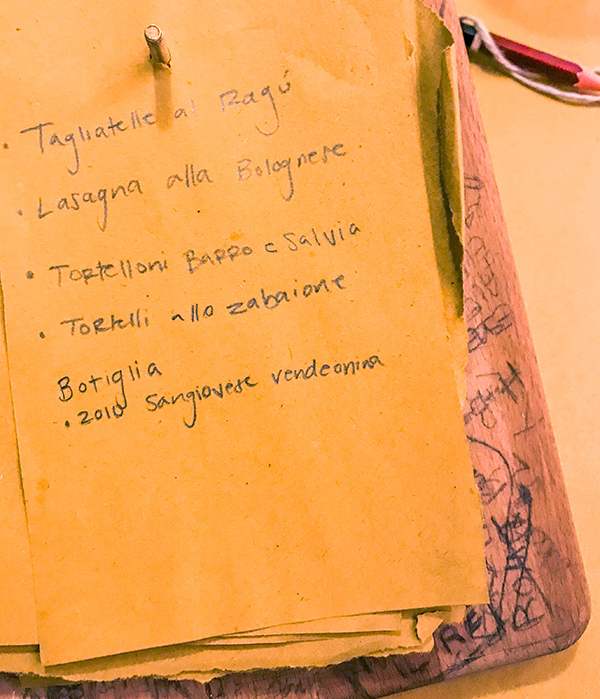 • Tagliatelle al Ragú
• Lasagna alla Bolognese
• Tortelloni Barro e Salvia
• Tortelli allo zabaione
Botiglia
• 2010 Sangiovese vendeonina